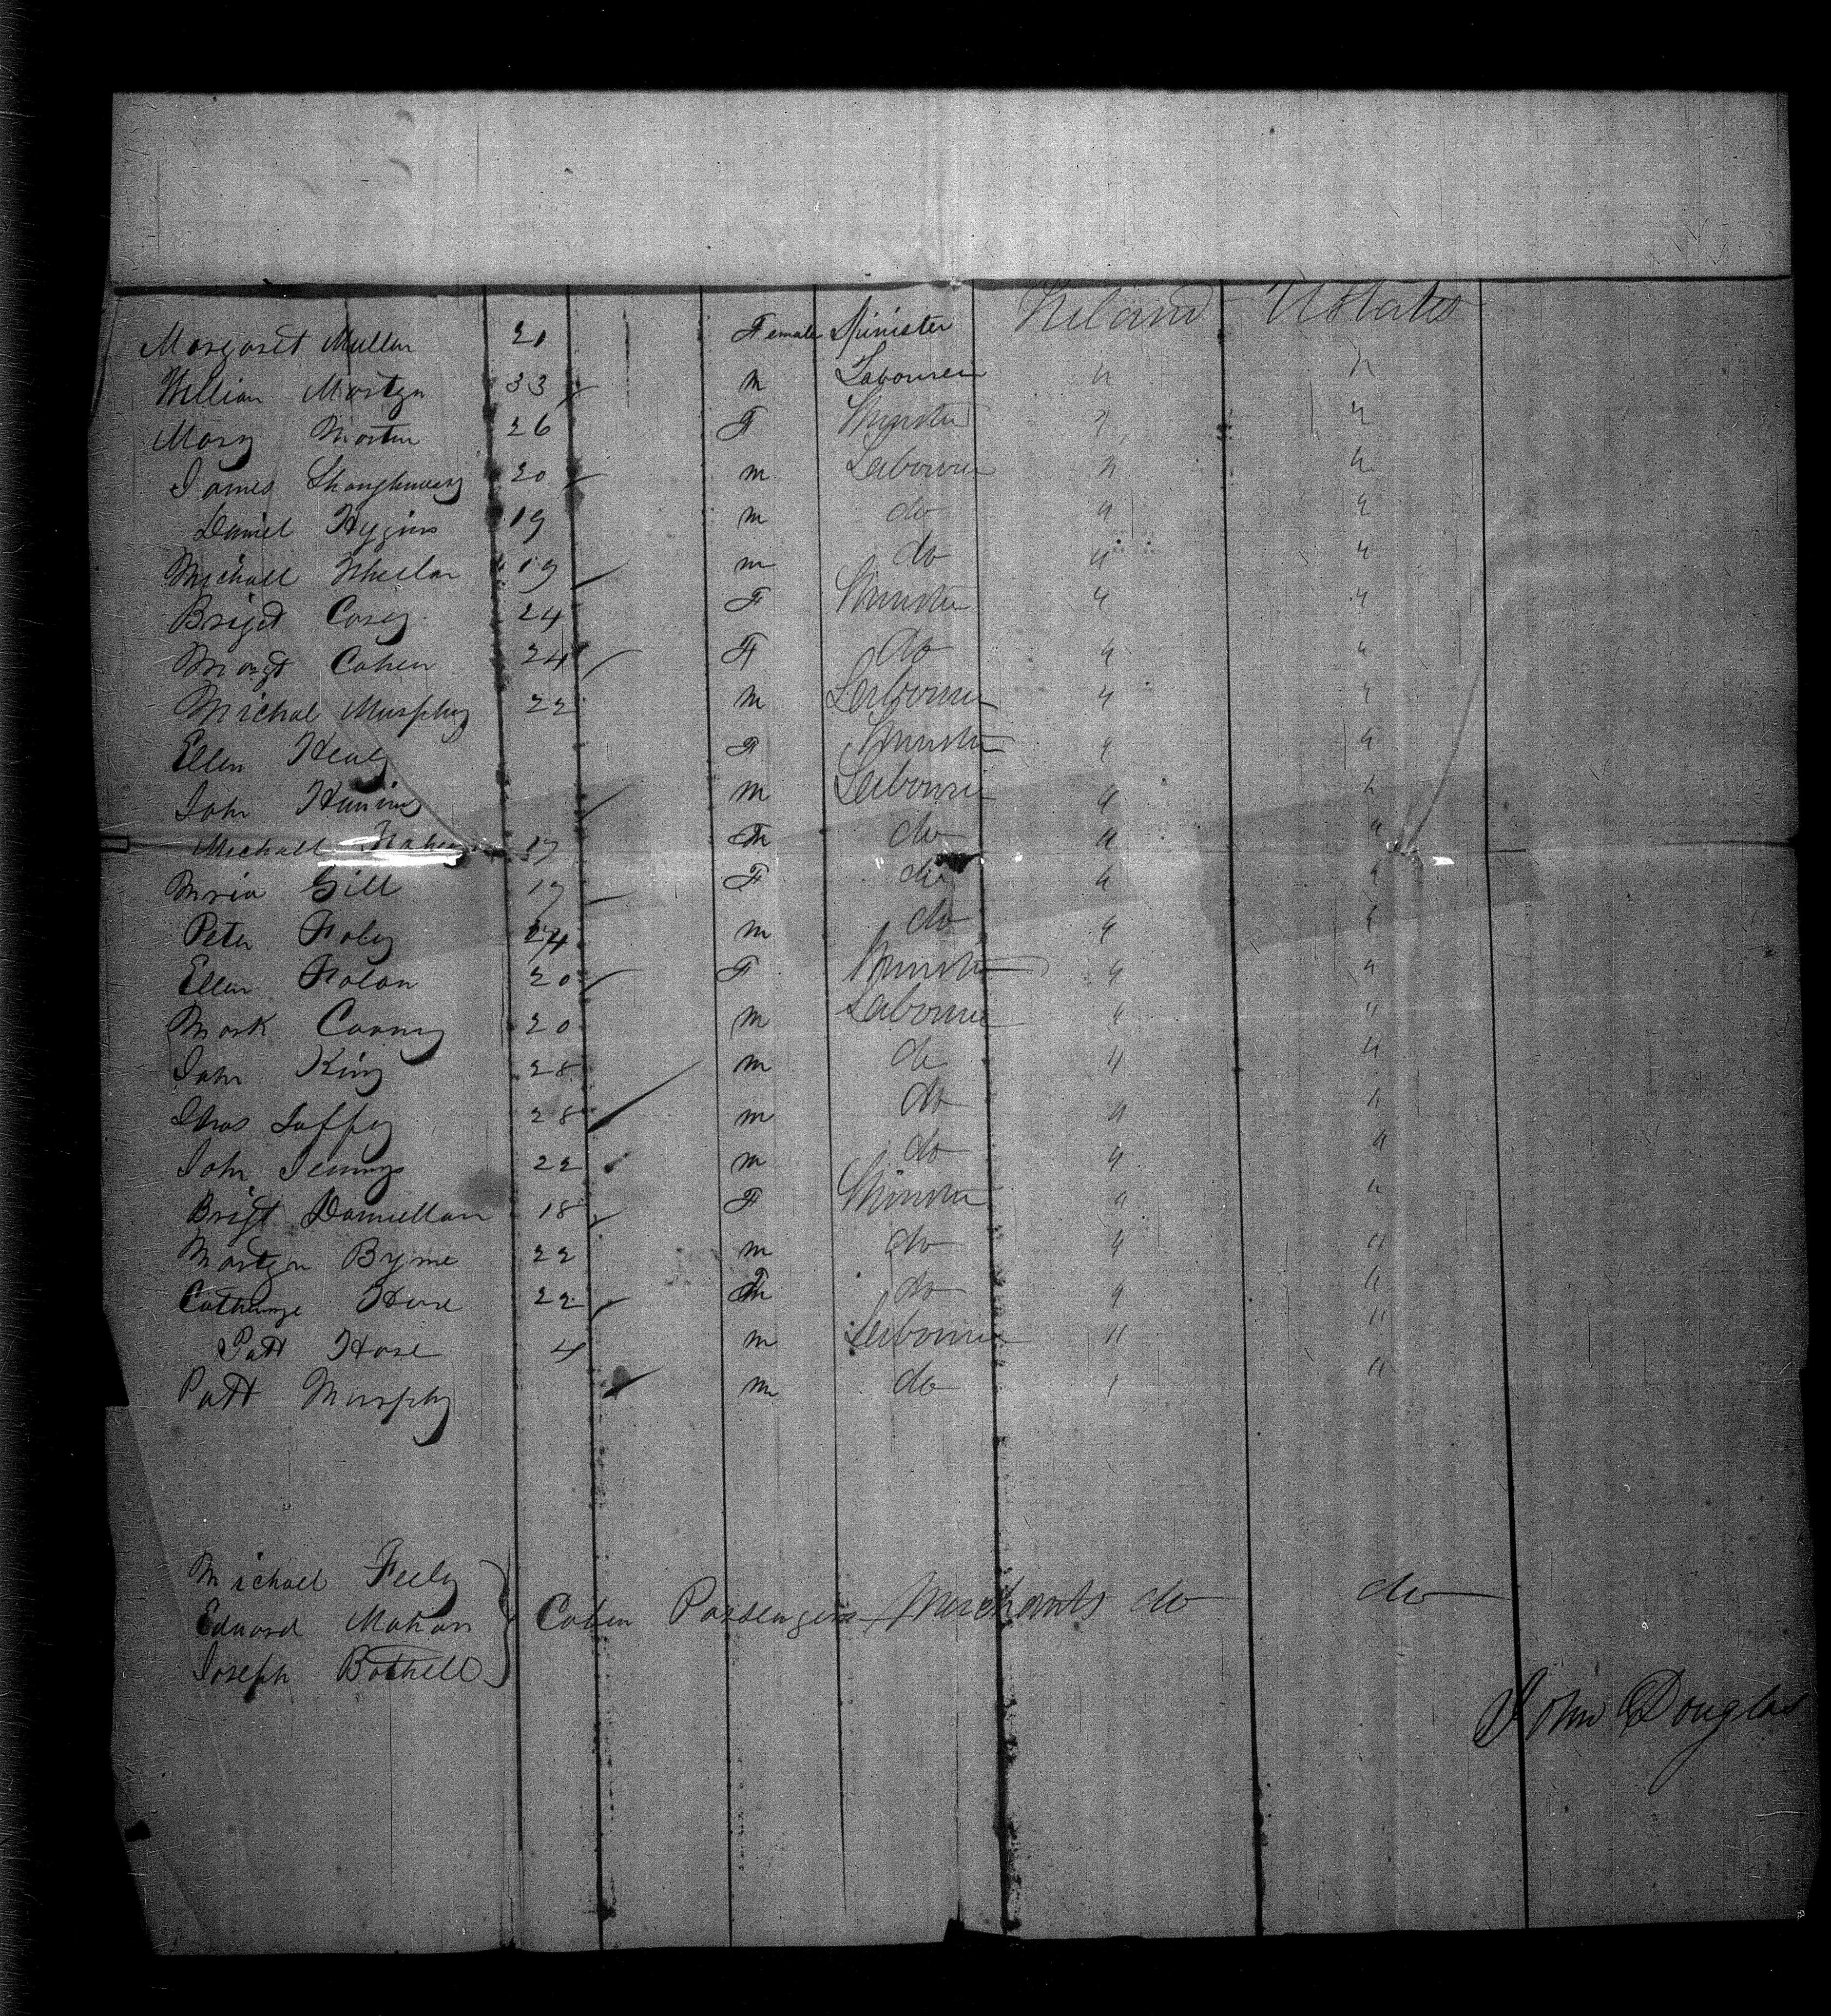 Margaret Mullen 21 Female Spinister Ireland UStates
William Martyn 33 m Labourer " "
Mary Martin 26 F Spinster " "
James Shaughnessy 20 m Labourer " "
Daniel Hygins 19 m do " "
Michall Whelan 19 m do " "
Briget Casey 24 F Spinster " "
Margt Cohen 24 F do " "
Michal Murphy 22 m Labourer " "
Ellen Healy F Spinster " "
John m Labourer " "
Michall 19 do " "
Mria Gill 19 F do " "
Peter Foley 24 m do " "
Ellen Folan 20 F Spinster " "
Mark Conny 20 m Labourer " "
John King 28 m do " "
Thos Laffey 28 m do " "
John Jennings 22 m do " "
Brigt Donnellan 18 F Spinster " "
Martyn Byrne 22 m do " "
Hose 22 do " "
Patt Hose 4 m Labourer " "
Patt Murphy m do " "
Michael Feely
Edward Mahon } Caben Passengers Merchants do do
Joseph Bothell
John Douglas